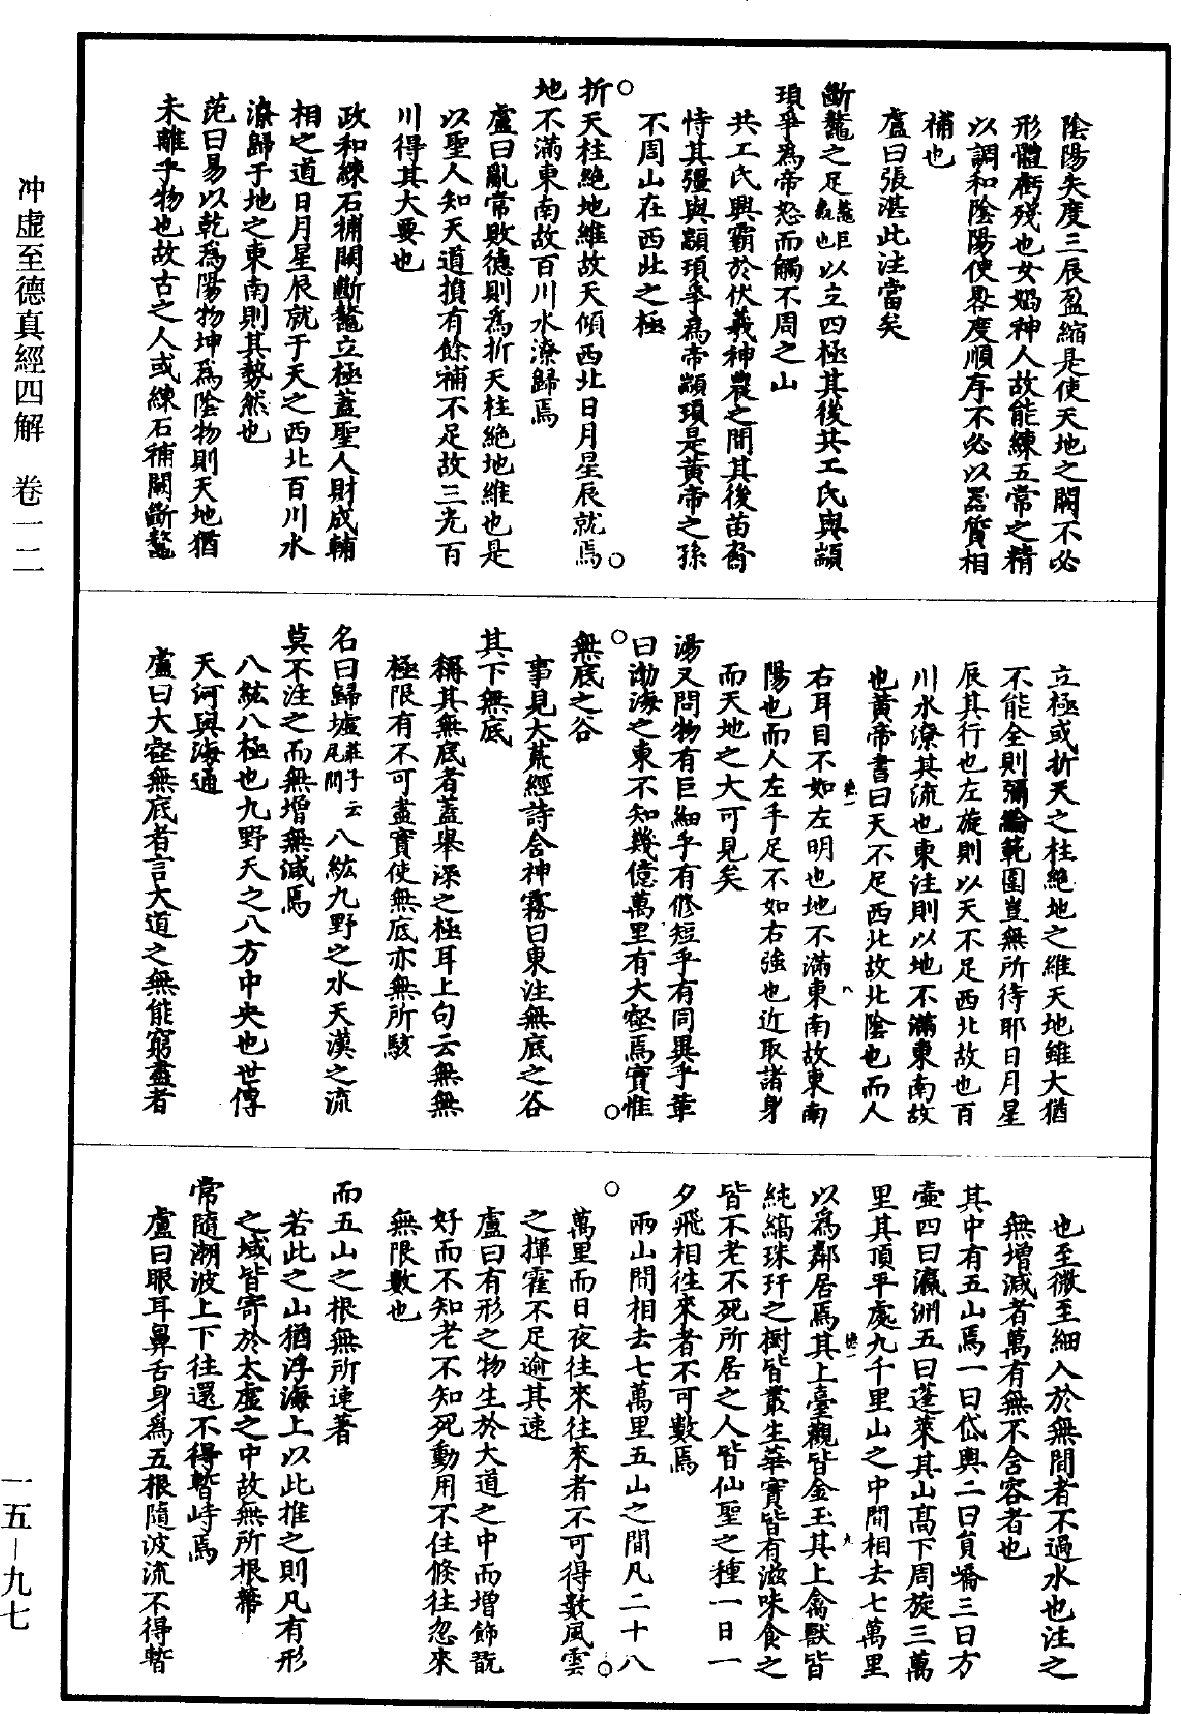 冲虛至德真經四解　卷一二
一五—九七
陰陽失度三辰盈縮是使天地之闕不必
形體虧殘也女媧神人故能練五常之精
以調和陰陽使晷度順序不必以器質相
補也
盧曰張湛此注當矣
斷鼇之足鼇巨龜也以立四極其後共工氏與顓
頊爭為帝怒而觸不周之山
共工氏興霸於伏羲神農之間其後苗裔
恃其彊與顓頊爭為帝顓頊是黃帝之孫
不周山在西北之極
折天柱絕地維故天傾西北日月星辰就焉
地不滿東南故百川水潦歸焉
盧曰亂常敗德則為折天柱絕地維也是
以聖人知天道損有餘補不足故三光百
川得其大要也
政和練石補闕斷鼇立極蓋聖人財成輔
相之道日月星辰就于天之西北百川水
潦歸于地之東南則其勢然也
范曰易以乾為陽物坤為陰物則天地猶
未離乎物也故古之人或練石補闕斷鼇
立極或折天之柱絕地之維天地雖大猶
不能全則彌綸範圍豈無所待耶日月星
辰其行也左旋則以天不足西北故也百
川水潦其流也東注則以地不滿東南故
也黃帝書曰天不足西北故北陰也而人
右耳目不如左明也地不滿東南故東南
陽也而人左手足不如右強也近取諸身
而天地之大可見矣
湯又問物有巨細乎有修短乎有同異乎革
曰渤海之東不知幾億萬里有大壑焉實惟
無底之谷
事見大荒經詩含神霧曰東注無底之谷
其下無底
稱其無底者蓋舉深之極耳上句云無無
極限有不可盡實使無底亦無所駭
名曰歸墟莊子云尾閭八紘九野之水天漢之流
莫不注之而無增無減焉
八紘八極也九野天之八方中央也世傳
天河與海通
盧曰大壑無底者言大道之無能窮盡者
也至微至細入於無間者不過水也注之
無增減者萬有無不含容者也
其中有五山焉一曰岱輿二曰員嶠三曰方
壺四曰瀛洲五曰蓬萊其山高下周旋三萬
里其頂平處九千里山之中間相去七萬里
以為鄰居焉其上臺觀皆金玉其上禽獸皆
純縞珠玕之樹皆叢生華實皆有滋味食之
皆不老不死所居之人皆仙聖之種一日一
夕飛相往來者不可數焉
兩山間相去七萬里五山之間凡二十八
萬里而日夜往來往來者不可得數風雲
之揮霍不足逾其速
盧曰有形之物生於大道之中而增飾翫
好而不知老不知死動用不住倏往忽來
無限數也
而五山之根無所連著
若此之山猶浮海上以此推之則凡有形
之域皆寄於太虛之中故無所根蔕
常隨潮波上下往還不得蹔峙焉
盧曰眼耳鼻舌身為五根隨波流不得蹔